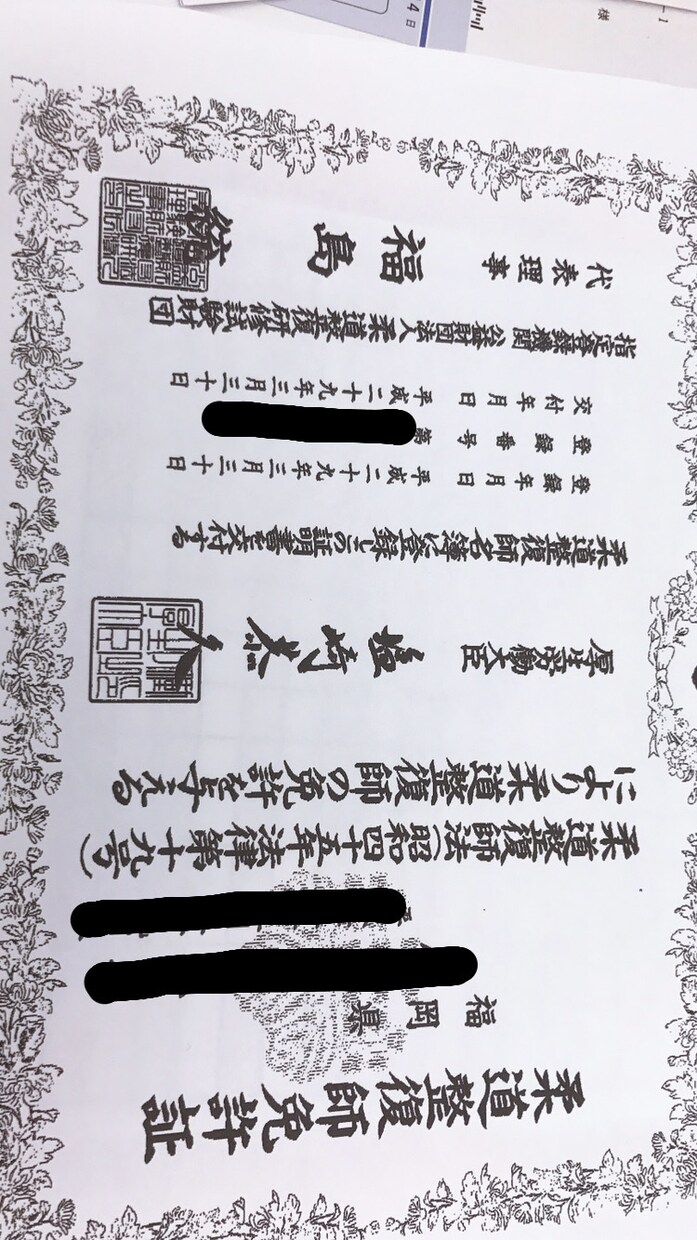 柔道整復師免許証
福岡県
柔道整復師法(昭和四十五年法律第十九号)
により柔道整復師の免許を与える
厚生労働大臣 塩崎恭久
柔道整復師名簿に登録しこの証明書を交付する
登録年月日 平成二十九年三月三十日
登録番号 第
交付年月日 平成二十九年三月三十日
指定登録機関 公益財団法人柔道整復研修試験財団
代表理事 福島
4日
様